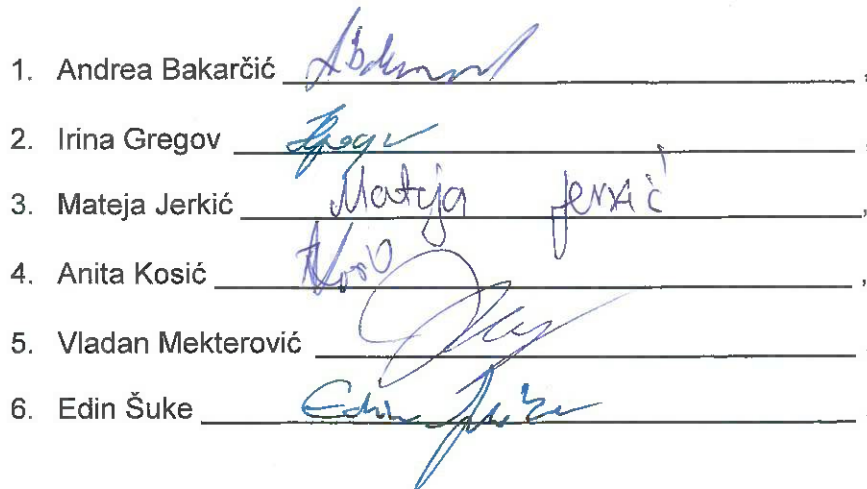 1. Andrea Bakarčić ,
2. Irina Gregov
3. Mateja Jerkić Mateja Jerkić ,
4. Anita Kosić ,
5. Vladan Mekterović
6. Edin Šuke Edin